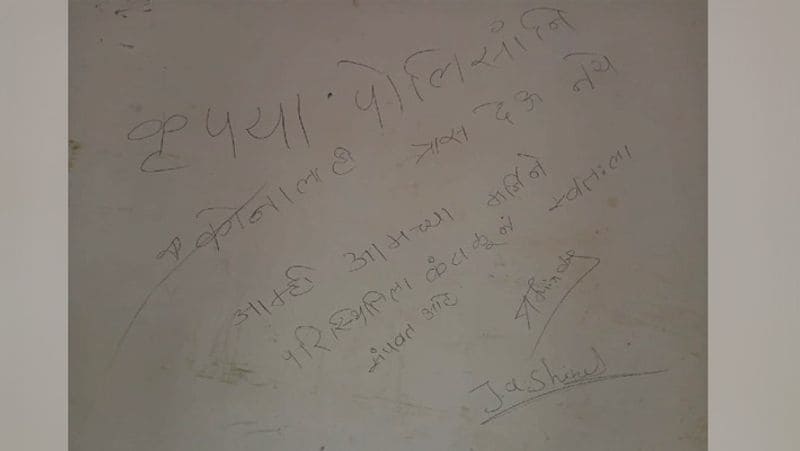 कृपया पोलिसांनि
कोनालाही त्रास देऊ नये
आम्ही आमच्या मर्जिने
परिस्थितिला कंटाळून स्वतःला
संपवत आहे